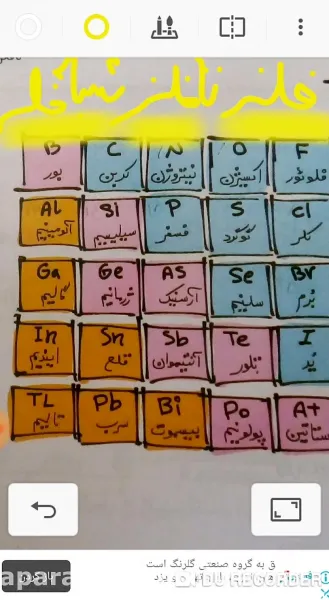 فلز نافلز شبه‌فلز
B C N O F
بور کربن نیتروژن اکسیژن فلوئور
Al Si P S Cl
آلومینیم سیلیسیم فسفر گوگرد کلر
Ga Ge As Se Br
گالیم ژرمانیم آرسنیک سلنیم برم
In Sn Sb Te I
ایندیم قلع آنتیموان تلور ید
TL Pb Bi Po A+
تالیم سرب بیسموت پولونیم ستاتین
ق به گروه صنعتی گلرنگ است
apara
DU RECORDER
و یزد